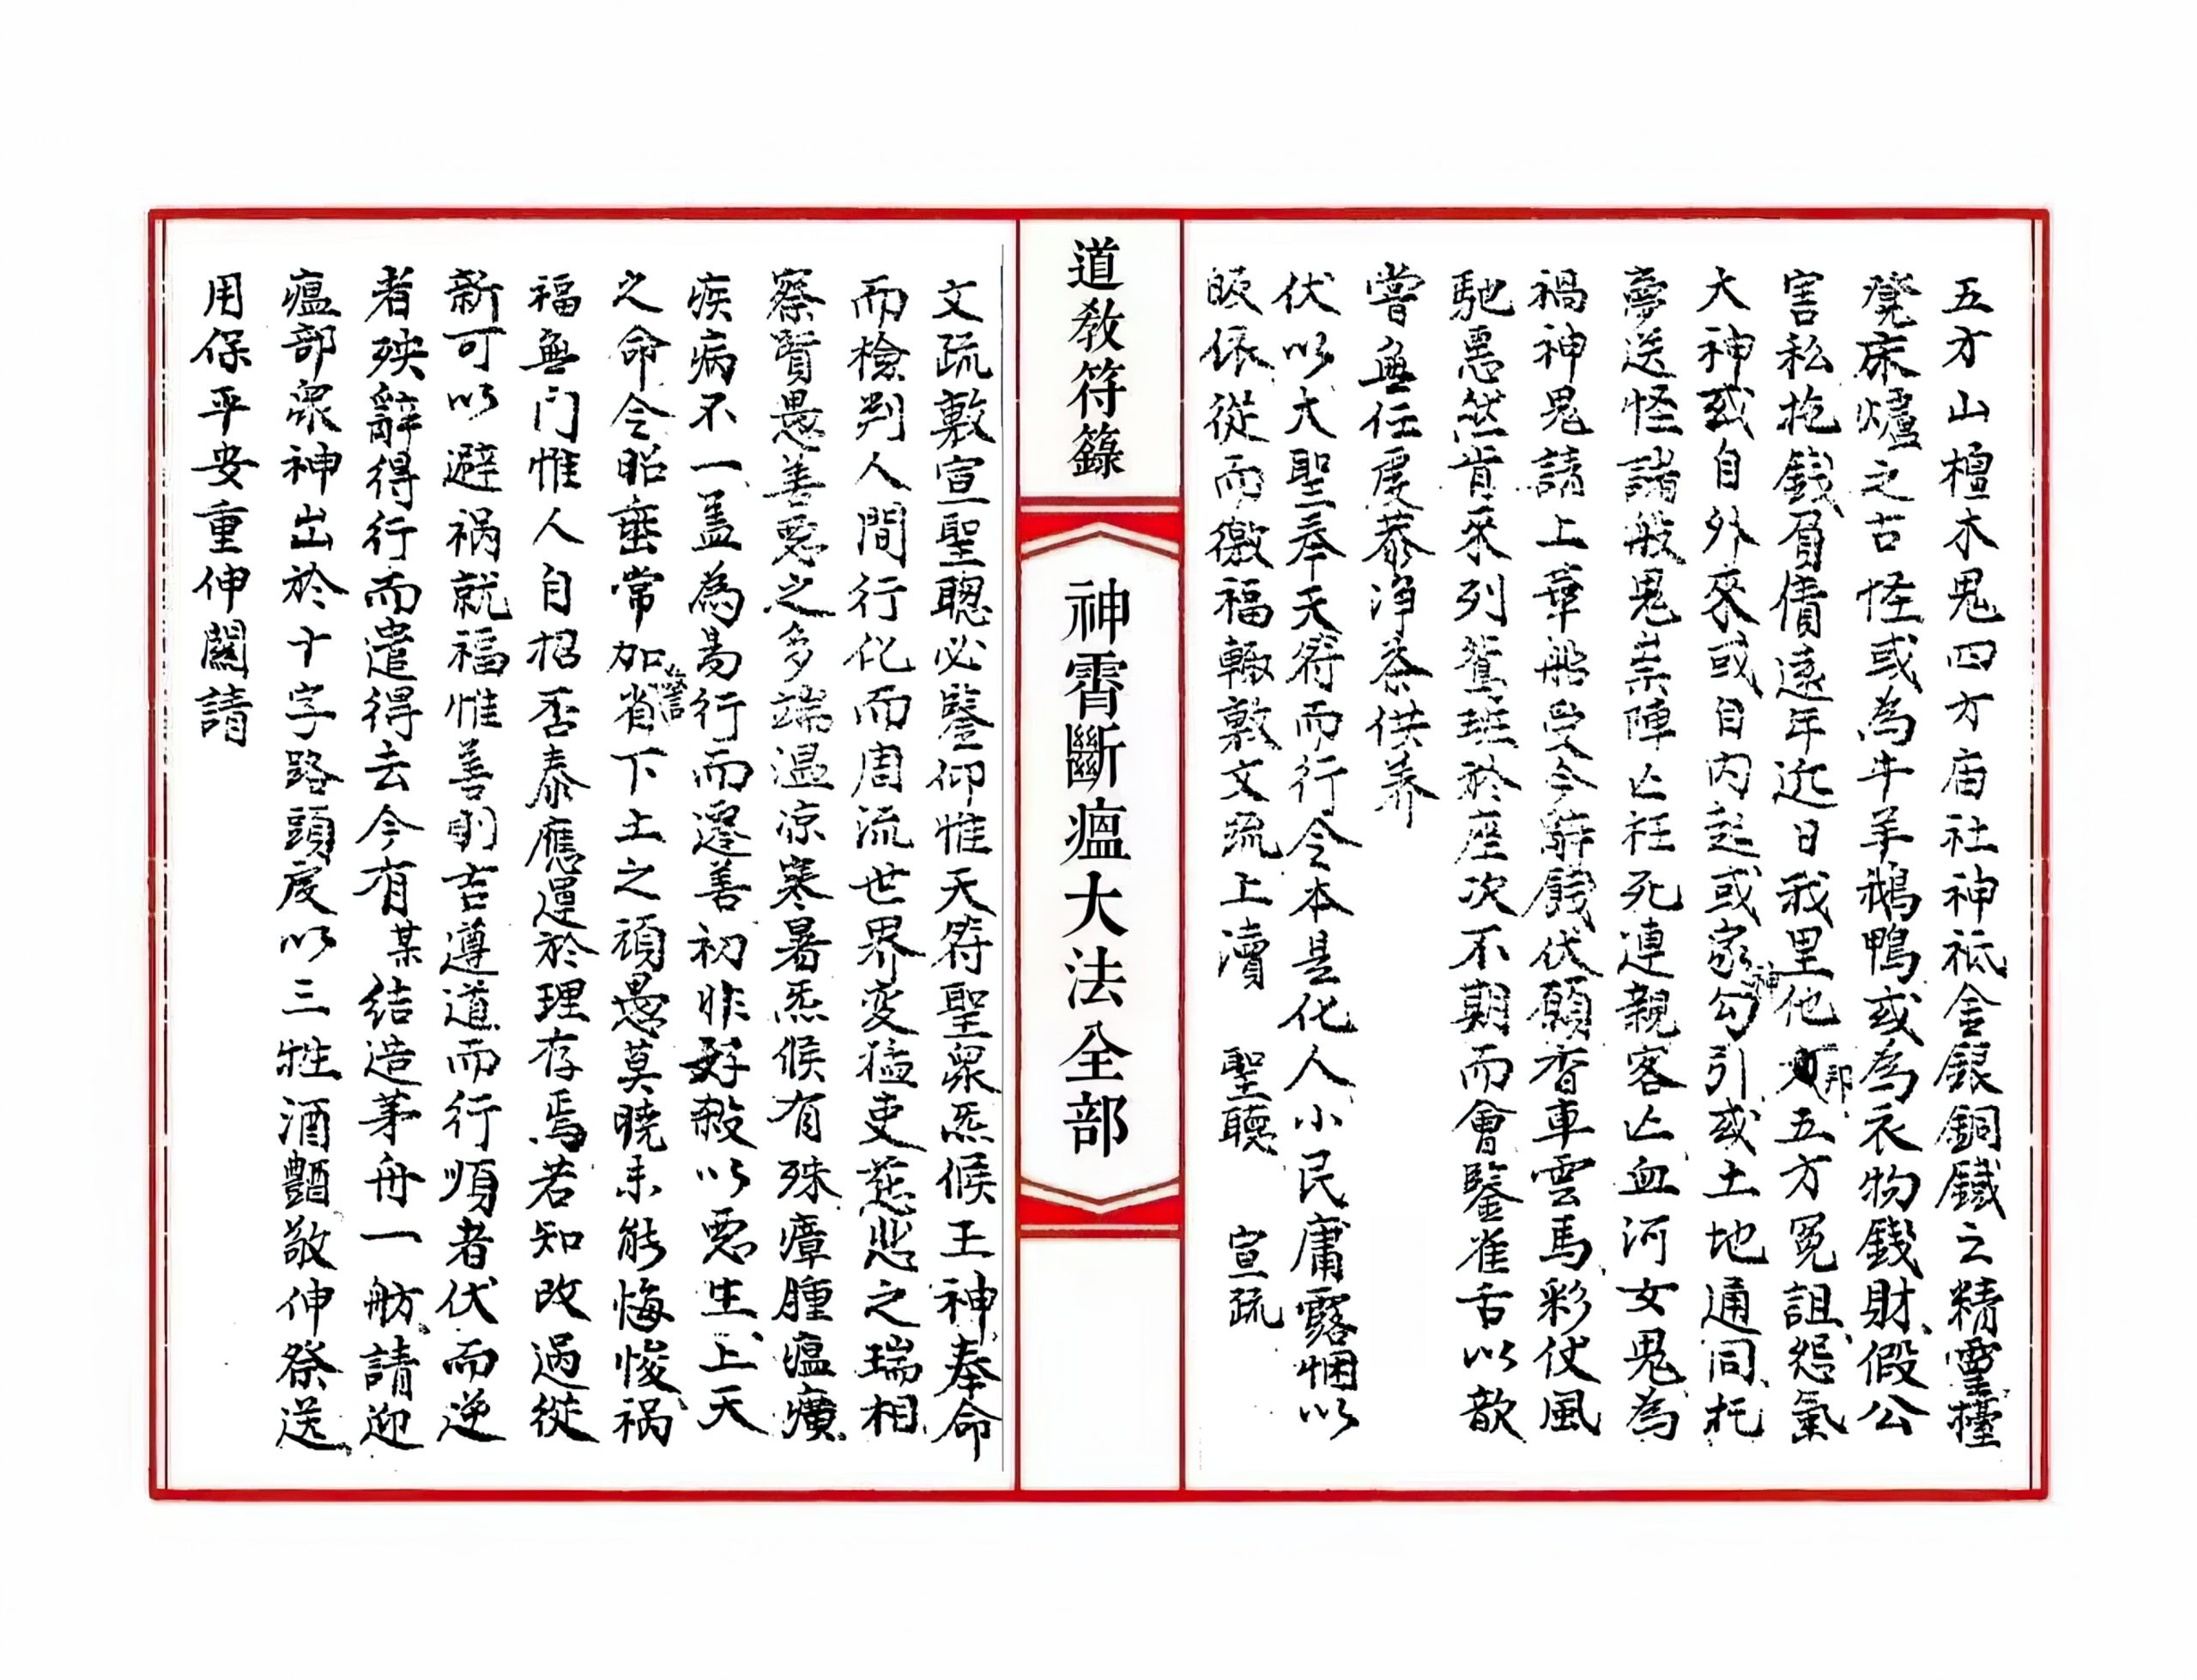 五方山檀木鬼四方庙社神祗金銀銅鐵之精靈檯
凳床爐之古怪或為牛羊鵝鴨或為衣物錢財假公
害私拖錢負債遠年近日我里他邦五方冤詛怨氣
大神或自外來或自内起或家神勾引或土地通同托
夢送怪諸般鬼祟陣亡枉死連親客亡血河女鬼為
禍神鬼請上華船受今餞伏願香車雲馬彩仗風
馳惠然肯來列鴛班於座次不期而會鑒雀舌以歆
嘗無任虔恭淨茶供养
伏以大聖奉天符而行令本是化人小民庸露悃以
皈依從而徼福輙敷文疏上瀆 聖聽 宣疏
道教符籙
神霄斷瘟大法全部
文疏敷宣聖聰必鑒仰惟天符聖眾炁候王神奉命
而檢判人間行化而周流世界变猛吏慈悲之瑞相
察賢愚善惡之多端温凉寒暑炁候有殊瘴腫瘟癀
疾病不一盖為昜行而遷善初非好殺以惡生上天
之命令昭垂常加省警下土之頑愚莫曉未能悔悛祸
福無门惟人自招否泰應運於理存焉若知改過從
新可以避祸就福惟善則吉遵道而行順者伏而逆
者殃辭得行而遣得去今有某結造茅舟一舫請迎
瘟部眾神出於十字路頭虔以三牲酒醴敬伸祭送
用保平安重伸闗請